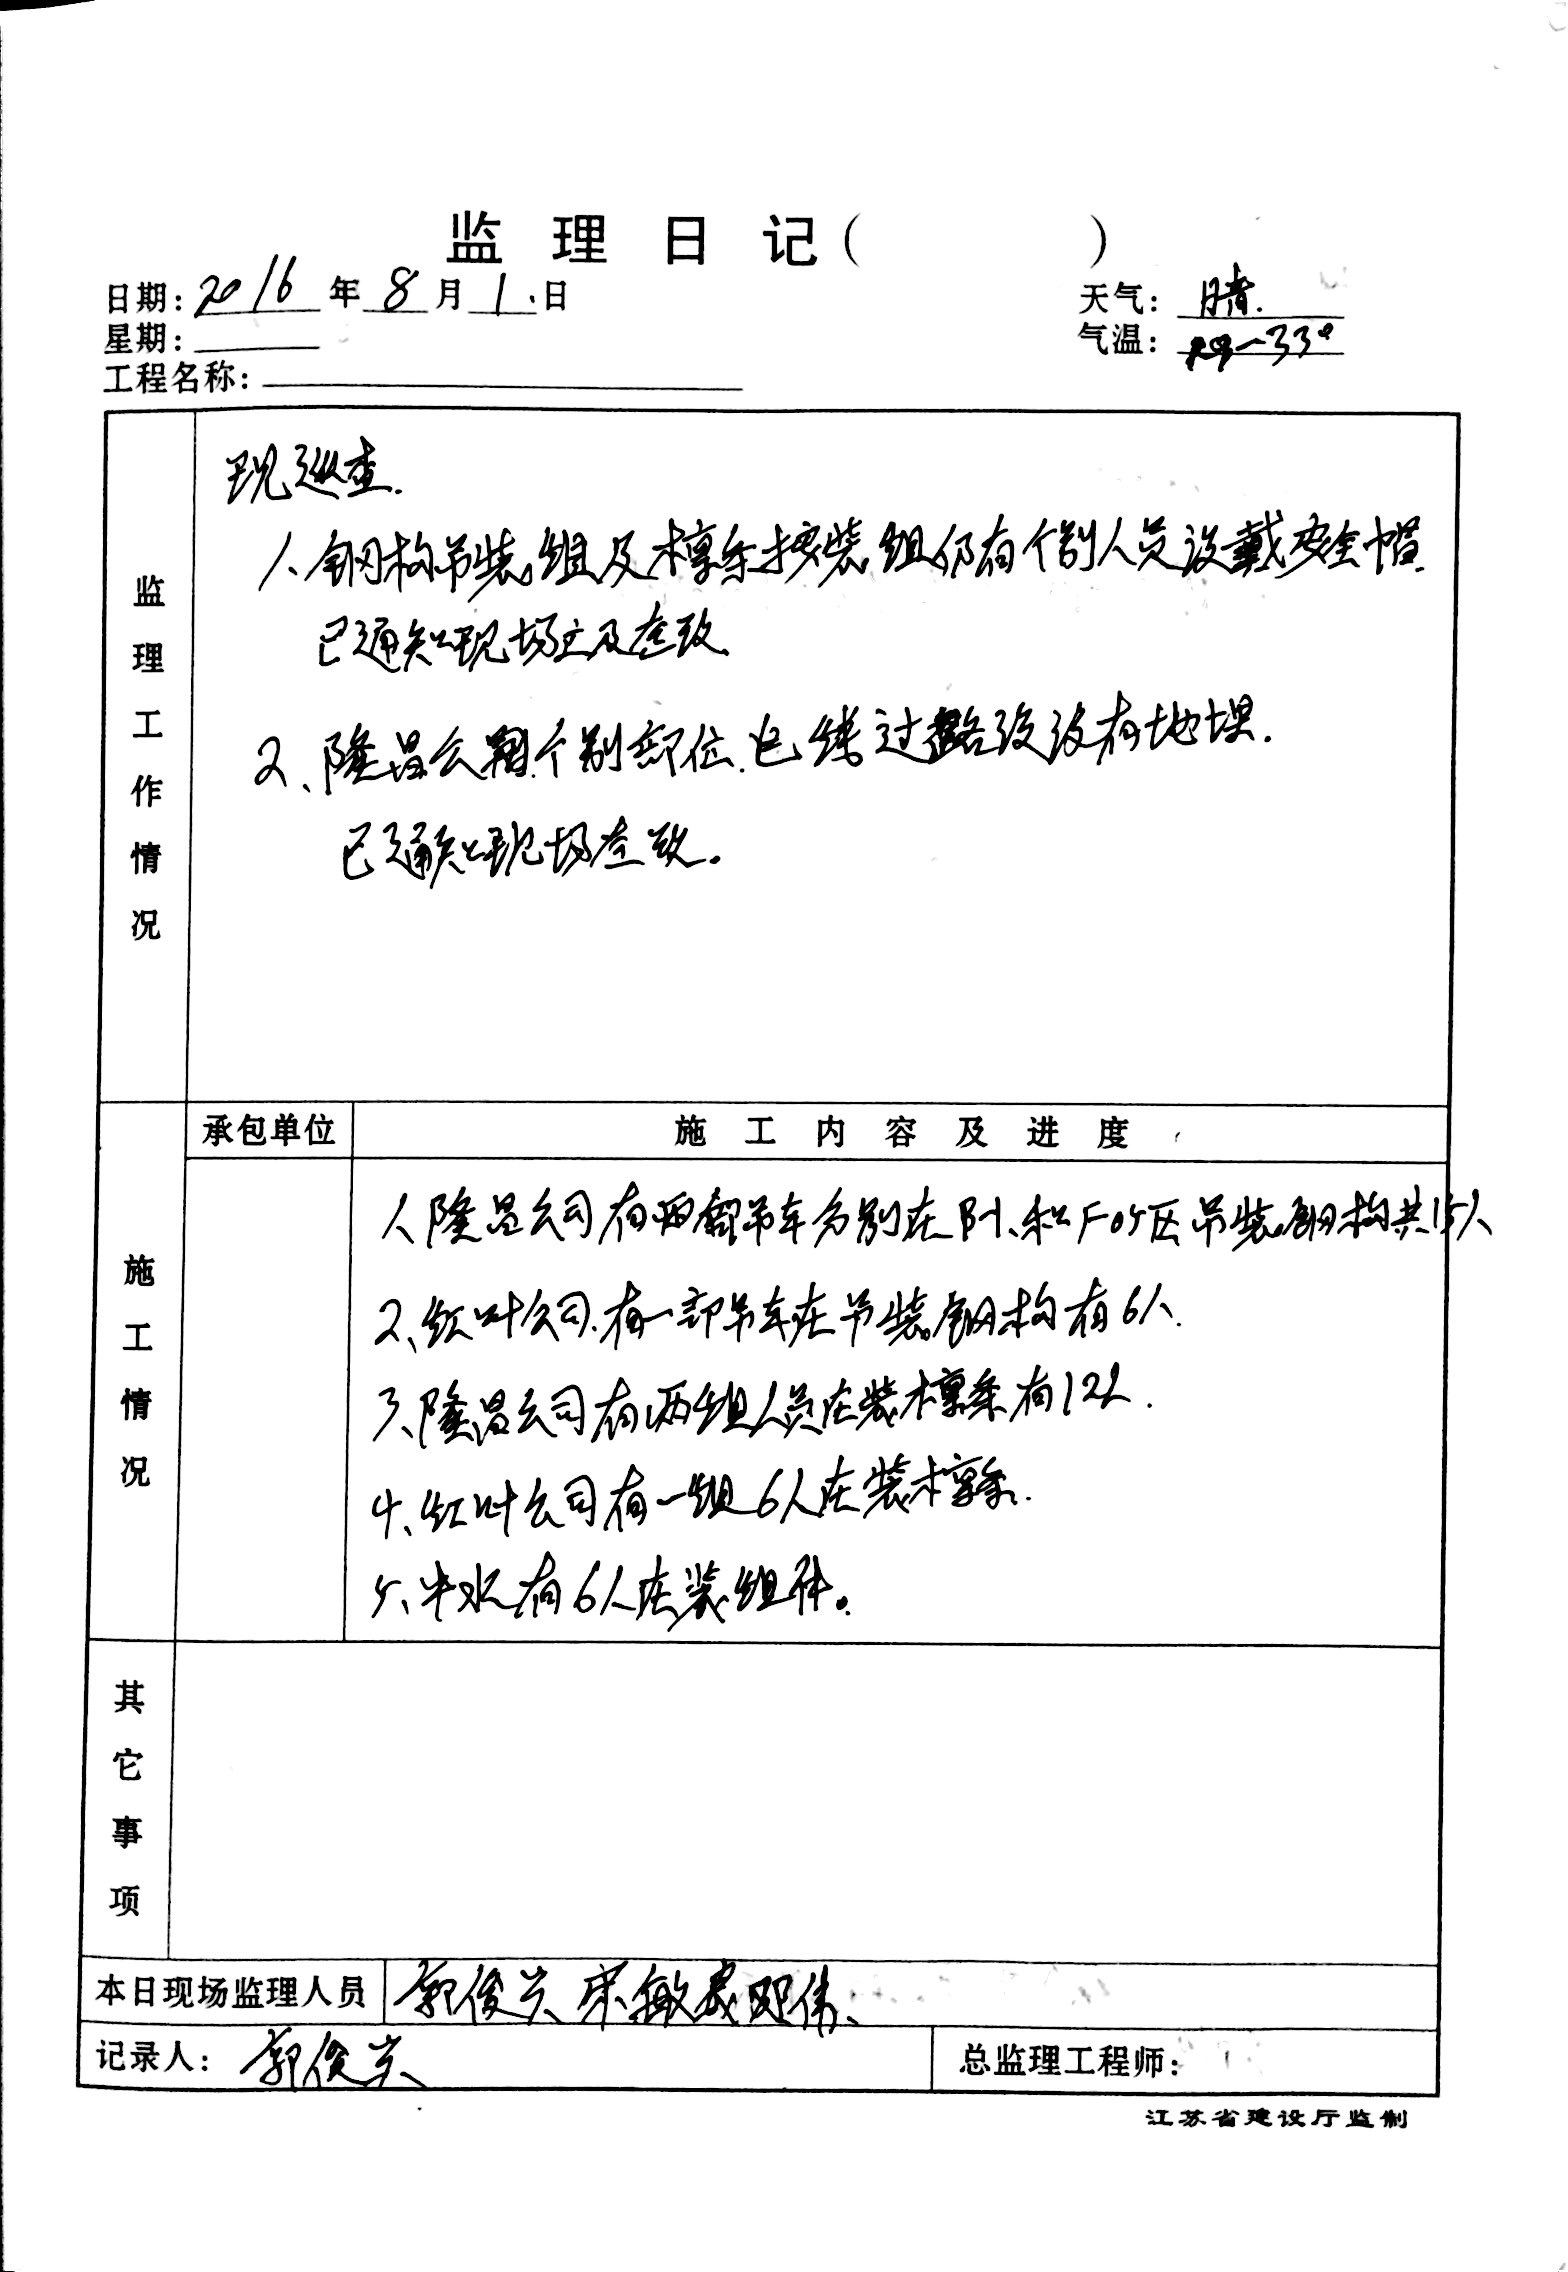 监理日记（ ）
日期：2016年8月1日
天气：晴.
星期：
气温：29-33°
工程名称：
监理工作情况
现巡查.
1、钢构吊装组及檩条按装组仍有个别人员没戴安全帽.
已通知现场立及查改
2、隆昌公司个别部位.电缆过路没没有地埋.
已通知现场查改。
承包单位
施工内容及进度
施工情况
1、隆昌公司有两部吊车分别在 和F05区吊装钢构共15人
2、红叶公司.有一部吊车在吊装钢构有6人.
3、隆昌公司有两组人员在装檩条有12人.
4、红叶公司有一组6人在装檩条.
5、中水有6人在装组件。
其它事项
本日现场监理人员 郭俊兴 宋敏成 邓伟、
记录人：郭俊兴
总监理工程师：
江苏省建设厅监制